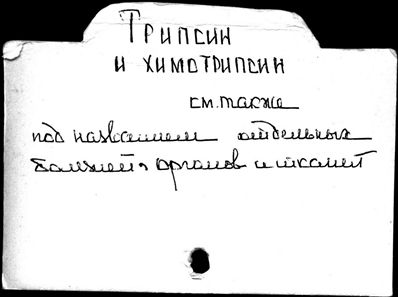 Трипсин
и химотрипсин
см. также
под названием отдельных
болезней, органов и тканей